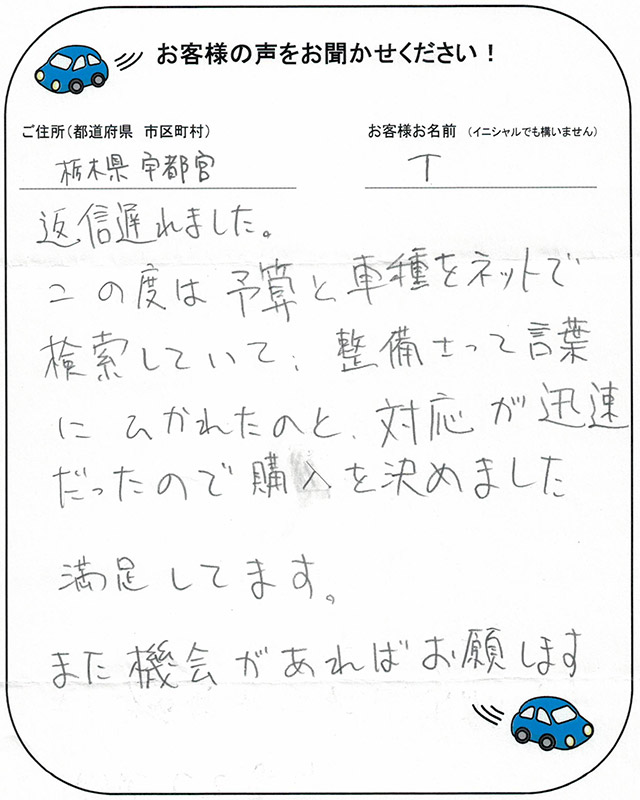 お客様の声をお聞かせください！
ご住所（都道府県　市区町村）
お客様お名前　（イニシャルでも構いません）
栃木県 宇都宮
T
返信遅れました。
この度は予算と車種をネットで
検索していて、整備士って言葉
にひかれたのと、対応が迅速
だったので購入を決めました
満足してます。
また機会があればお願します